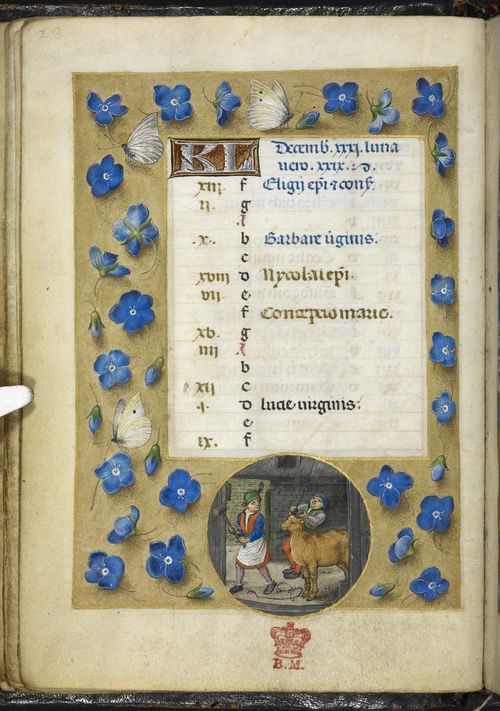 23
KL Decemb. xxxi. luna
vero. xxix. d.
xiii f Eligii epi & conf.
ii. g
A
.x. b Barbare v̄ginis.
c
xviii d Nycolai epi.
vii. e
f Conceptio marie.
xv. g
iiii A
b
xii c
.i. d lucie virginis.
e
ix. f
B.M.